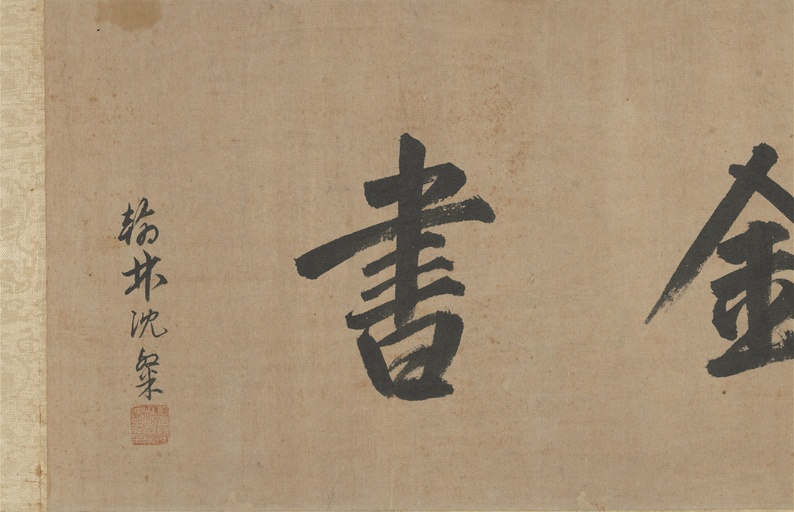 金書
翰林沈粲